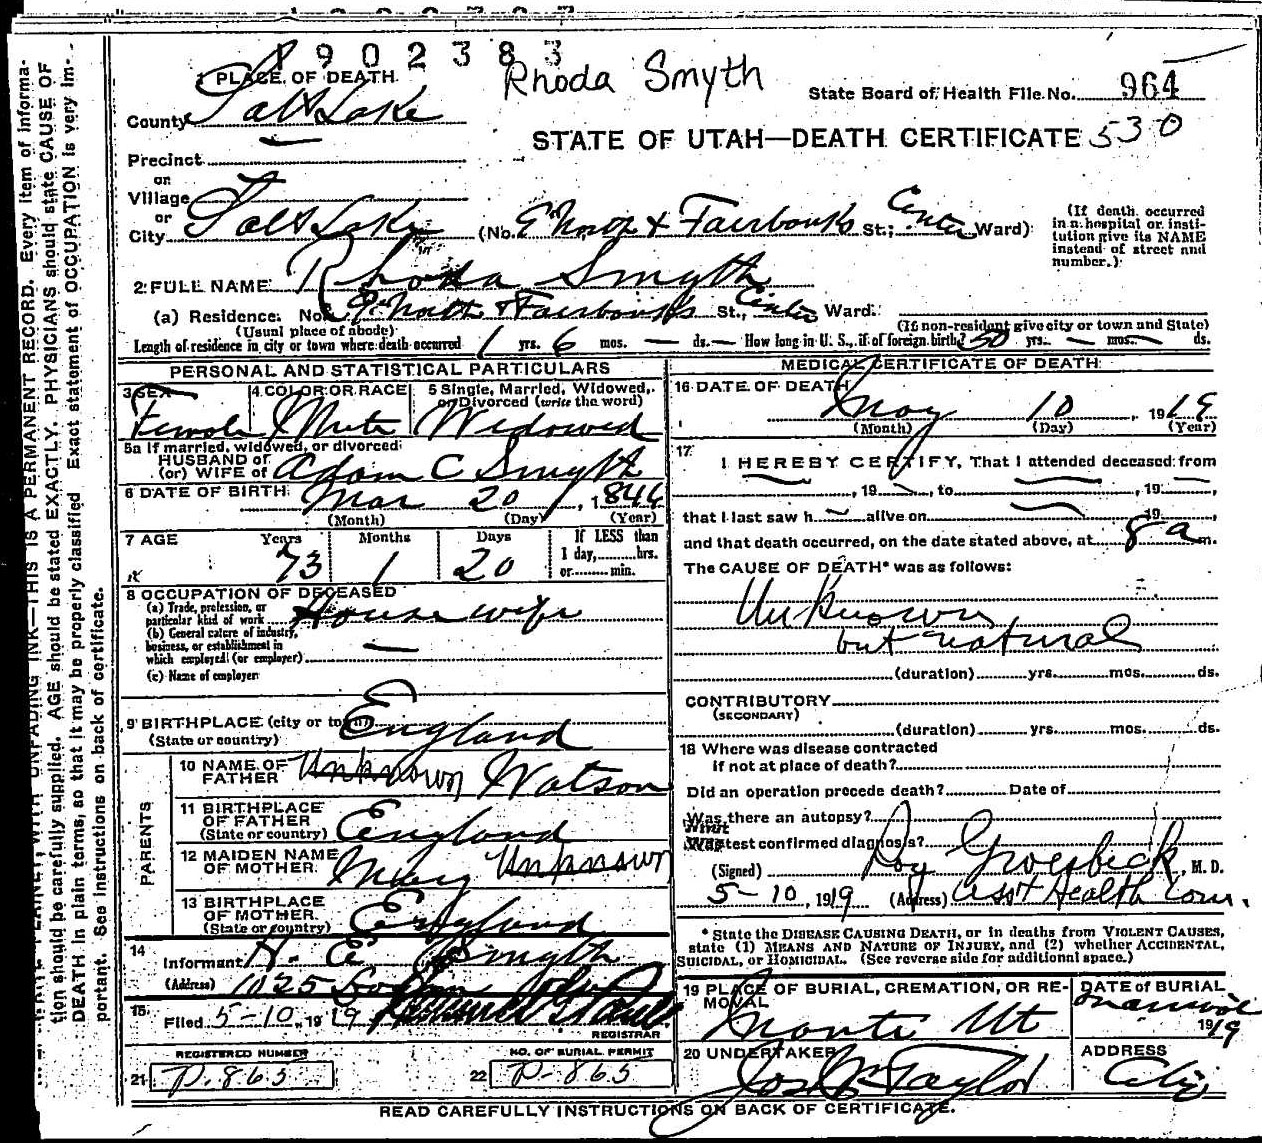 1902383
Rhoda Smyth
1 PLACE OF DEATH
State Board of Health File No. 964
County Salt Lake
STATE OF UTAH—DEATH CERTIFICATE 530
Precinct
or
Village
or
City Salt Lake (No. E North & Fairbanks St.; Center Ward)
(If death occurred in a hospital or institution give its NAME instead of street and number.)
2 FULL NAME Rhoda Smyth
(a) Residence. No. E North & Fairbanks St., Center Ward.
(Usual place of abode) (If non-resident give city or town and State)
Length of residence in city or town where death occurred 1 yrs. 6 mos. — ds. — How long in U. S., if of foreign birth? 50 yrs. — mos. — ds.
PERSONAL AND STATISTICAL PARTICULARS
3 SEX Female
4 COLOR OR RACE White
5 Single, Married, Widowed, or Divorced (write the word) Widowed
5a If married, widowed, or divorced
HUSBAND of
(or) WIFE of Adam C Smyth
6 DATE OF BIRTH Mar 20, 1846
(Month) (Day) (Year)
7 AGE Years 73 Months 1 Days 20 If LESS than 1 day, hrs. or min.
8 OCCUPATION OF DECEASED
(a) Trade, profession, or particular kind of work House wife
(b) General nature of industry, business, or establishment in which employed (or employer) —
(c) Name of employer
9 BIRTHPLACE (city or town) England
(State or country)
PARENTS
10 NAME OF FATHER Unknown Watson
11 BIRTHPLACE OF FATHER (State or country) England
12 MAIDEN NAME OF MOTHER Mary Unknown
13 BIRTHPLACE OF MOTHER (State or country) England
14 Informant H. E Smyth
(Address) 1025
15 Filed 5-10, 1919
REGISTRAR
REGISTERED NUMBER
21 P-865
NO. OF BURIAL PERMIT
22 P-865
MEDICAL CERTIFICATE OF DEATH
16 DATE OF DEATH
May 10, 1919
(Month) (Day) (Year)
17 I HEREBY CERTIFY, That I attended deceased from
, 19 , to , 19 ,
that I last saw h alive on 19 ,
and that death occurred, on the date stated above, at 8 a m.
The CAUSE OF DEATH* was as follows:
Unknown
but natural
(duration) yrs. mos. ds.
CONTRIBUTORY
(SECONDARY)
(duration) yrs. mos. ds.
18 Where was disease contracted
if not at place of death?
Did an operation precede death? Date of
Was there an autopsy?
What test confirmed diagnosis?
(Signed) Groesbeck, M. D.
5-10, 1919 (Address) Ass't Health Com.
* State the DISEASE CAUSING DEATH, or in deaths from VIOLENT CAUSES, state (1) MEANS AND NATURE OF INJURY, and (2) whether ACCIDENTAL, SUICIDAL, or HOMICIDAL. (See reverse side for additional space.)
19 PLACE OF BURIAL, CREMATION, OR REMOVAL Manti Ut
DATE of BURIAL 1919
20 UNDERTAKER Jos Wm Taylor
ADDRESS City
READ CAREFULLY INSTRUCTIONS ON BACK OF CERTIFICATE.
WRITE PLAINLY, WITH UNFADING INK—THIS IS A PERMANENT RECORD. Every item of information should be carefully supplied. AGE should be stated EXACTLY. PHYSICIANS should state CAUSE OF DEATH in plain terms, so that it may be properly classified. Exact statement of OCCUPATION is very important. See instructions on back of certificate.